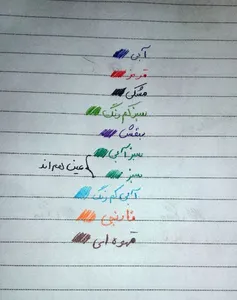 آبی
قرمز
مشکی
سبز کم رنگ
بنفش
سبز آبی
عین هم اند
سبز
آبی کم رنگ
نارنجی
قهوه ای